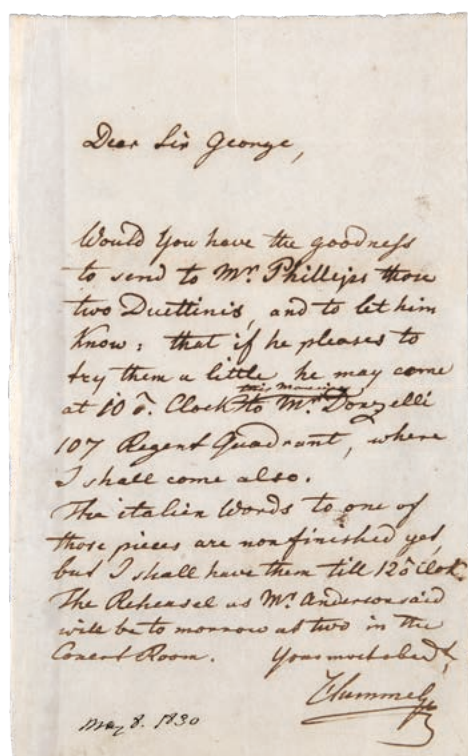 Dear Sir George,
Would You have the goodness
to send to Mr. Phillips those
two Duettinis, and to let him
Know: that if he pleases to
try them a little he may come
this Morning
at 10 o. Clock to Mr. Donzelli
107 Regent Quadrant, where
I shall come also.
The italien Words to one of
those pieces are non finished yet,
but I shall have them till 12 o Clok.
The Rehersel as Mr. Anderson said
will be to morrow at two in the
Concert Room. Yours most obedt,
Hummel
May 8. 1830